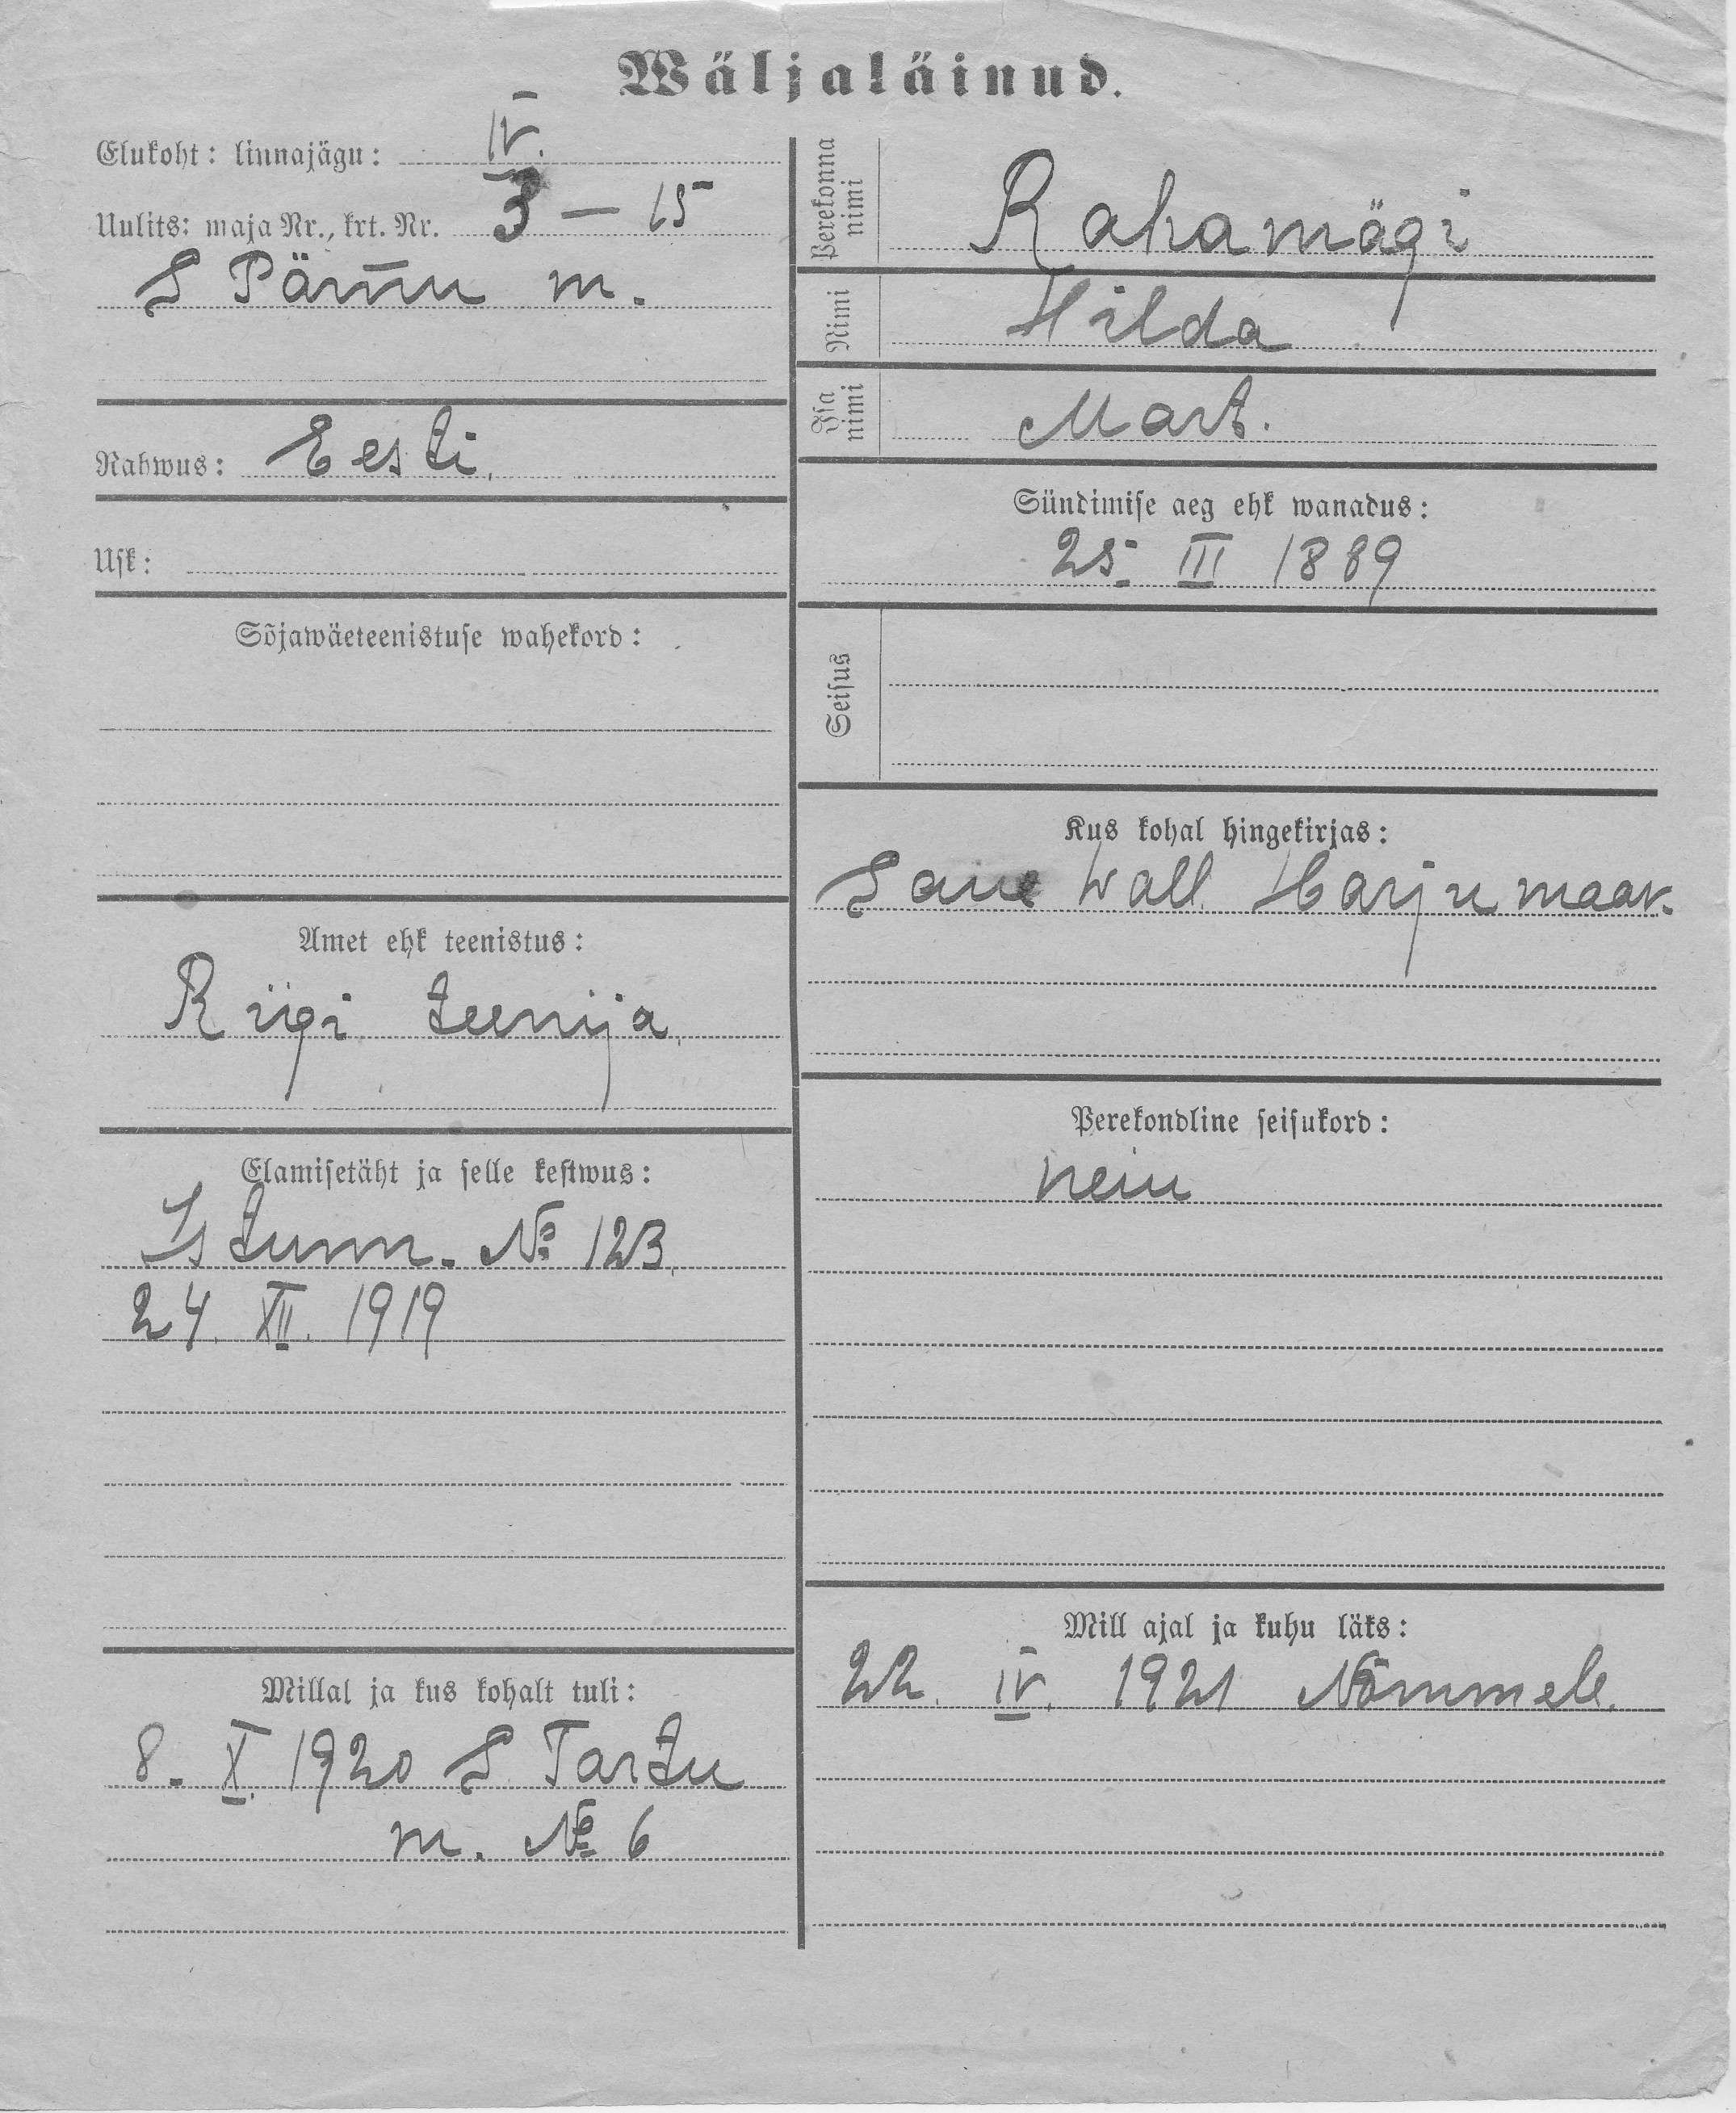 Wäljaläinud.
Elukoht: linnajägu: IV.
Uulits: maja Nr., krt. Nr. 3 — 15
S Pärnu m.
Rahwus: Eesti.
Usk:
Sõjawäeteenistuse wahekord:
Amet ehk teenistus:
Riigi teenija.
Elamisetäht ja selle kestwus:
Is tunn. № 123.
24. XII. 1919
Millal ja kus kohalt tuli:
8. X. 1920 S. Tartu
m. № 6
Perekonna nimi Rahamägi
Nimi Hilda
Isa nimi Mart.
Sündimise aeg ehk wanadus:
25. III 1889
Seisus
Kus kohal hingekirjas:
Saue wall. Harju maak.
Perekondline seisukord:
neiu
Mill ajal ja kuhu läks:
22. IV. 1921 Nõmmele.